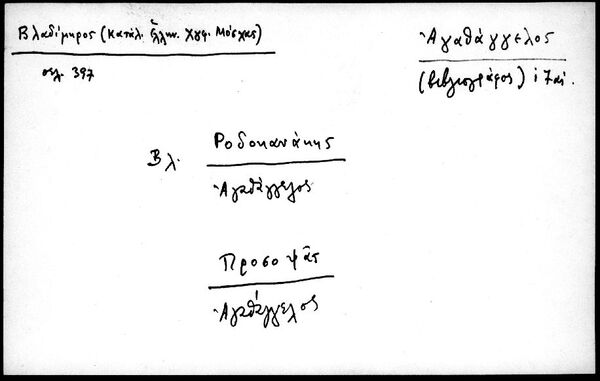 Βλαδίμηρος (Κατάλ. Ἑλλην. Χγφ. Μόσχας)
σελ. 397
Ἀγαθάγγελος
(βιβλιογράφος)
Βλ. Ροδοκανάκης
Ἀγαθάγγελος
Προσοψᾶς
Ἀγαθάγγελος